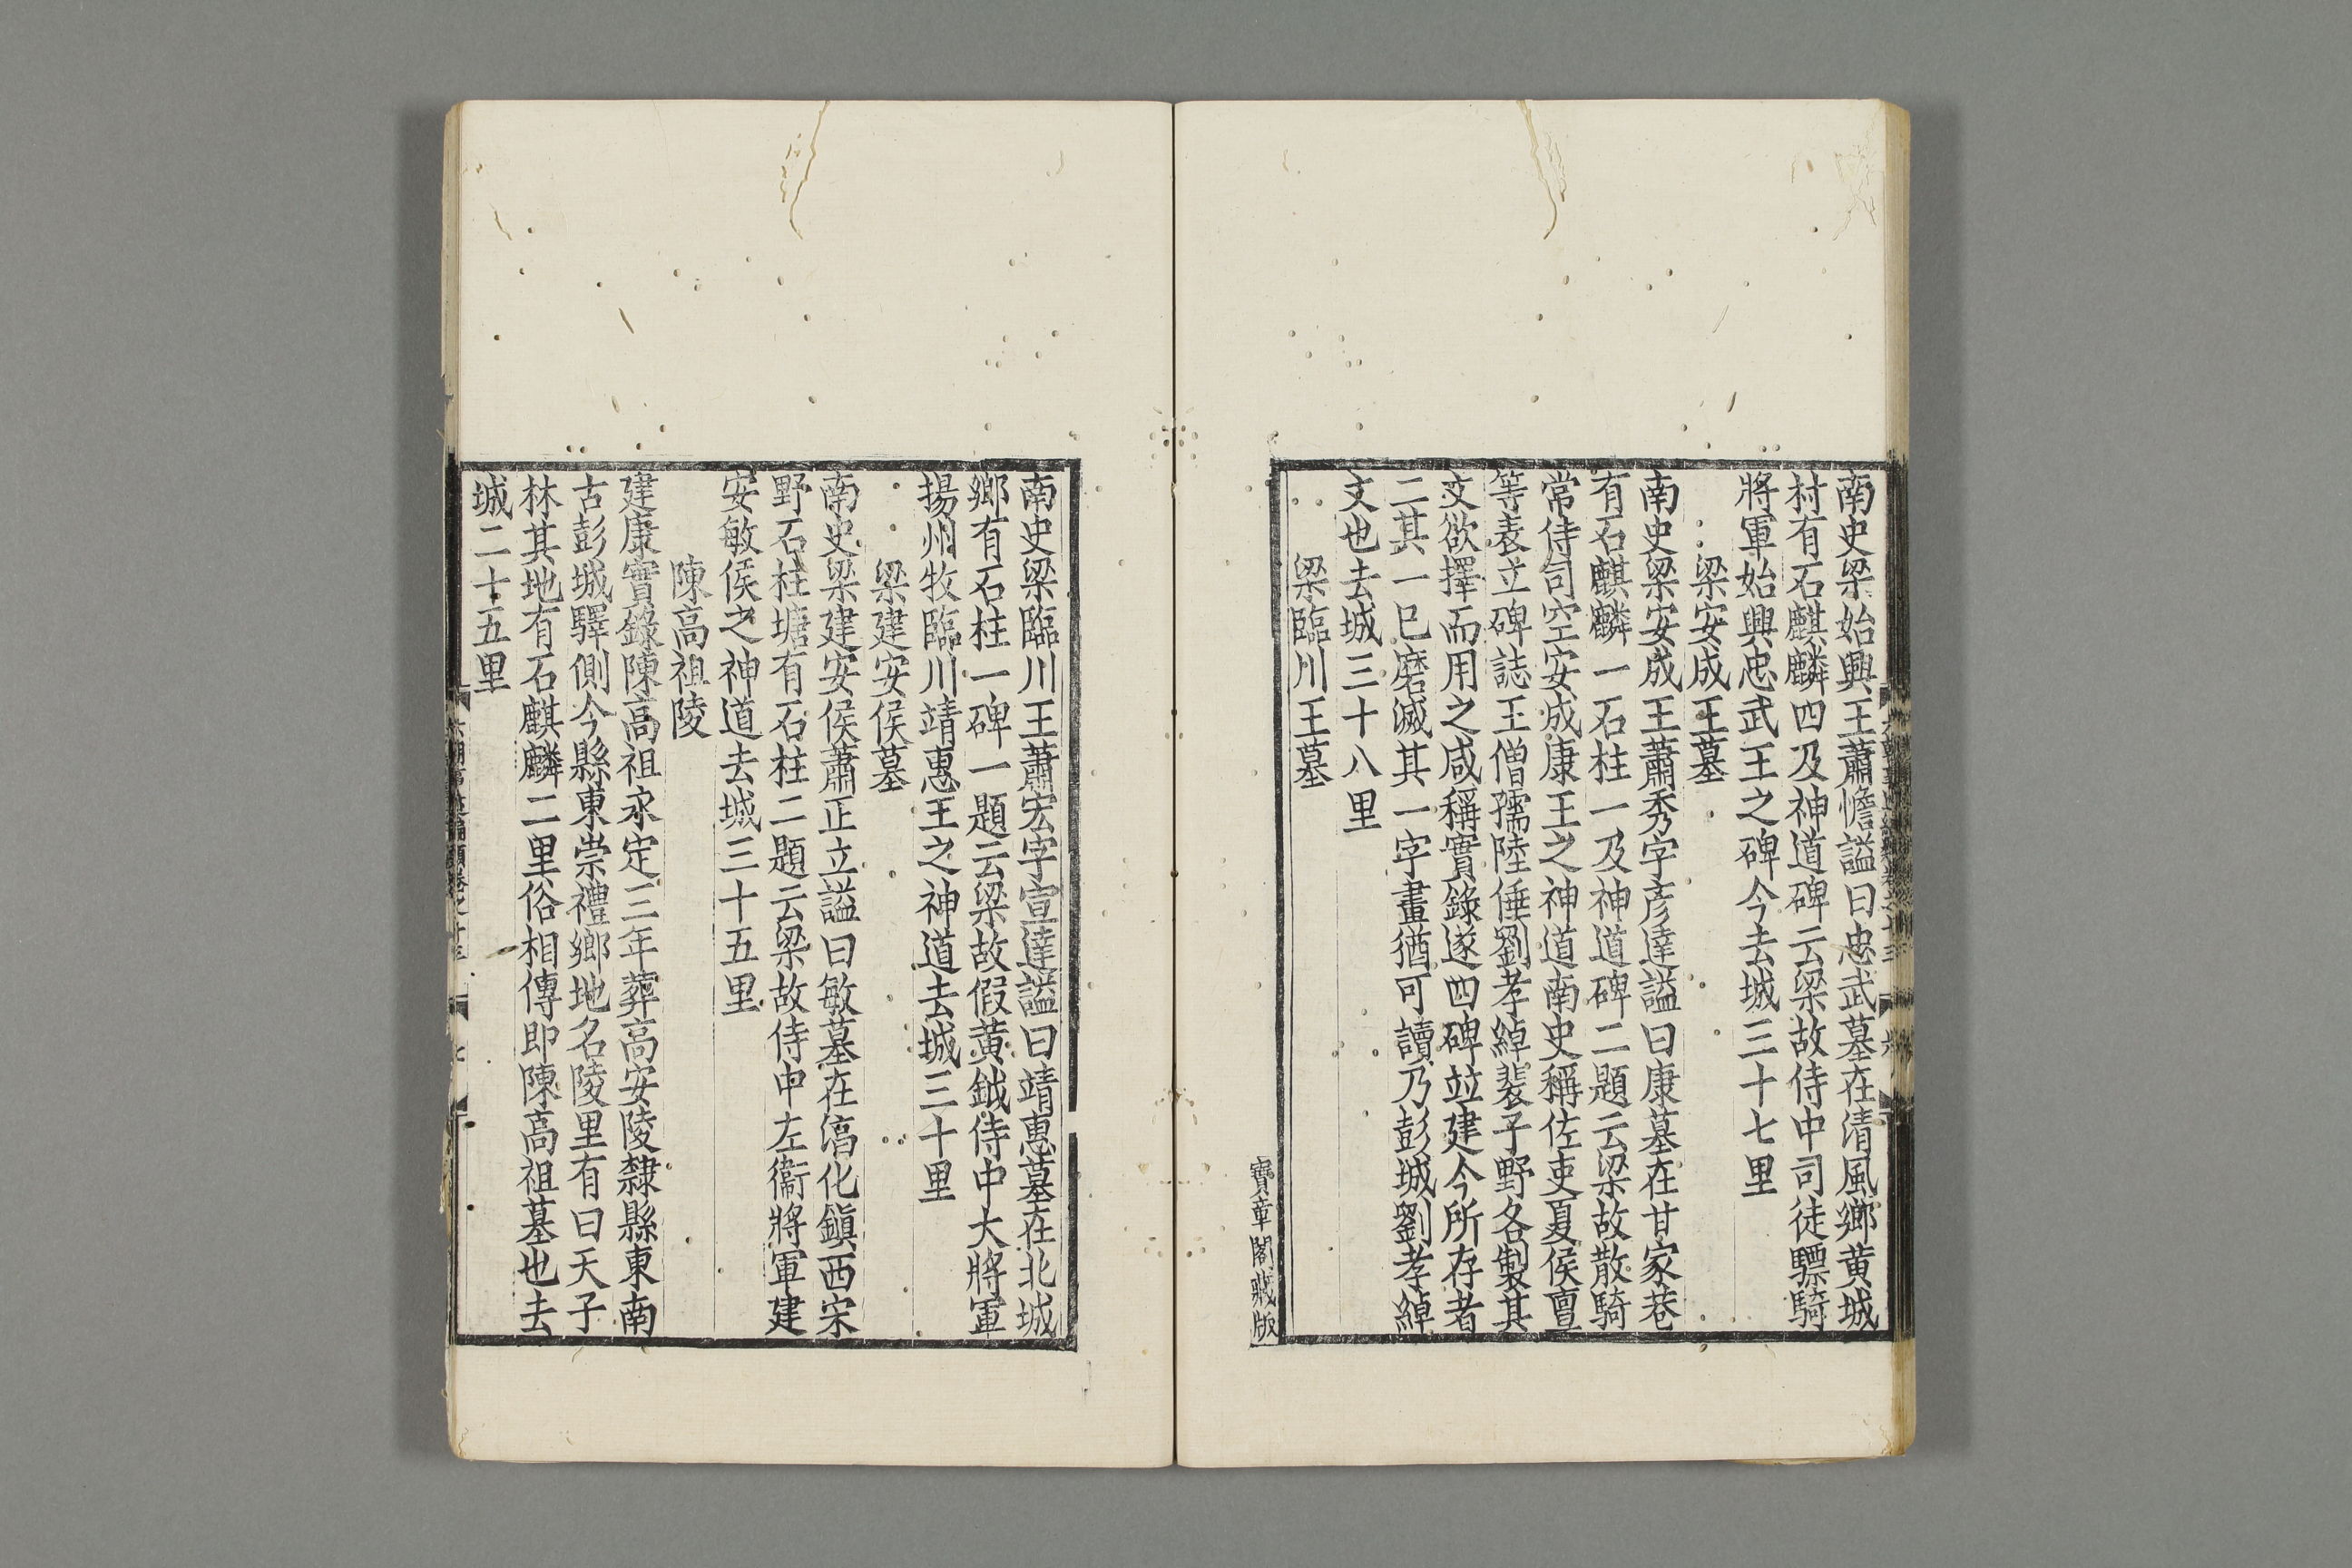 南史梁始興王蕭憺謚曰忠武墓在清風鄉黄城
村有石麒麟四及神道碑云梁故侍中司徒驃騎
將軍始興忠武王之碑今去城三十七里
梁安成王墓
南史梁安成王蕭秀字彦達謚曰康墓在甘家巷
有石麒麟一石柱一及神道碑二題云梁故散騎
常侍司空安成康王之神道南史稱佐吏夏侯亶
等表立碑誌王僧孺陸倕劉孝綽裴子野各製其
文欲擇而用之咸稱實錄遂四碑竝建今所存者
二其一已磨滅其一字畫猶可讀乃彭城劉孝綽
文也去城三十八里
梁臨川王墓
寶章閣藏版
南史梁臨川王蕭宏字宣達謚曰靖惠墓在北城
鄉有石柱一碑一題云梁故假黄鉞侍中大將軍
揚州牧臨川靖惠王之神道去城三十里
梁建安侯墓
南史梁建安侯蕭正立謚曰敏墓在淳化鎮西宋
野石柱塘有石柱二題云梁故侍中左衞將軍建
安敏侯之神道去城三十五里
陳高祖陵
建康實錄陳高祖永定三年葬高安陵隸縣東南
古彭城驛側今縣東崇禮鄉地名陵里有曰天子
林其地有石麒麟二里俗相傳即陳高祖墓也去
城二十五里